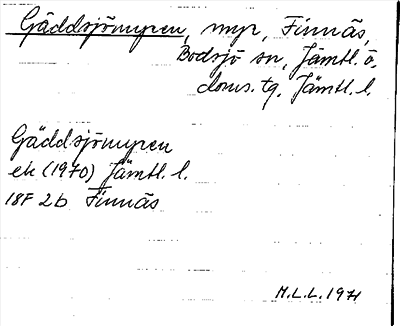 Gäddsjömyren, myr, Finnäs,
Bodsjö sn, Jämtl. ö.
doms. tg, Jämtl. l.
Gäddsjömyren
ek (1970) Jämtl. l.
18F 2b Finnäs
M.L.L. 1971